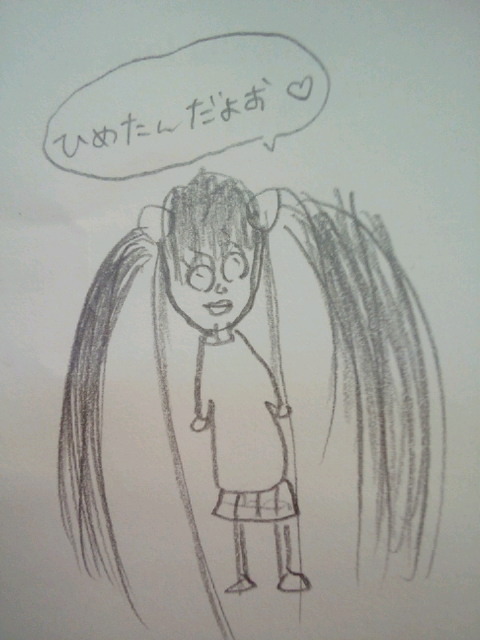 ひめたんだよお♡